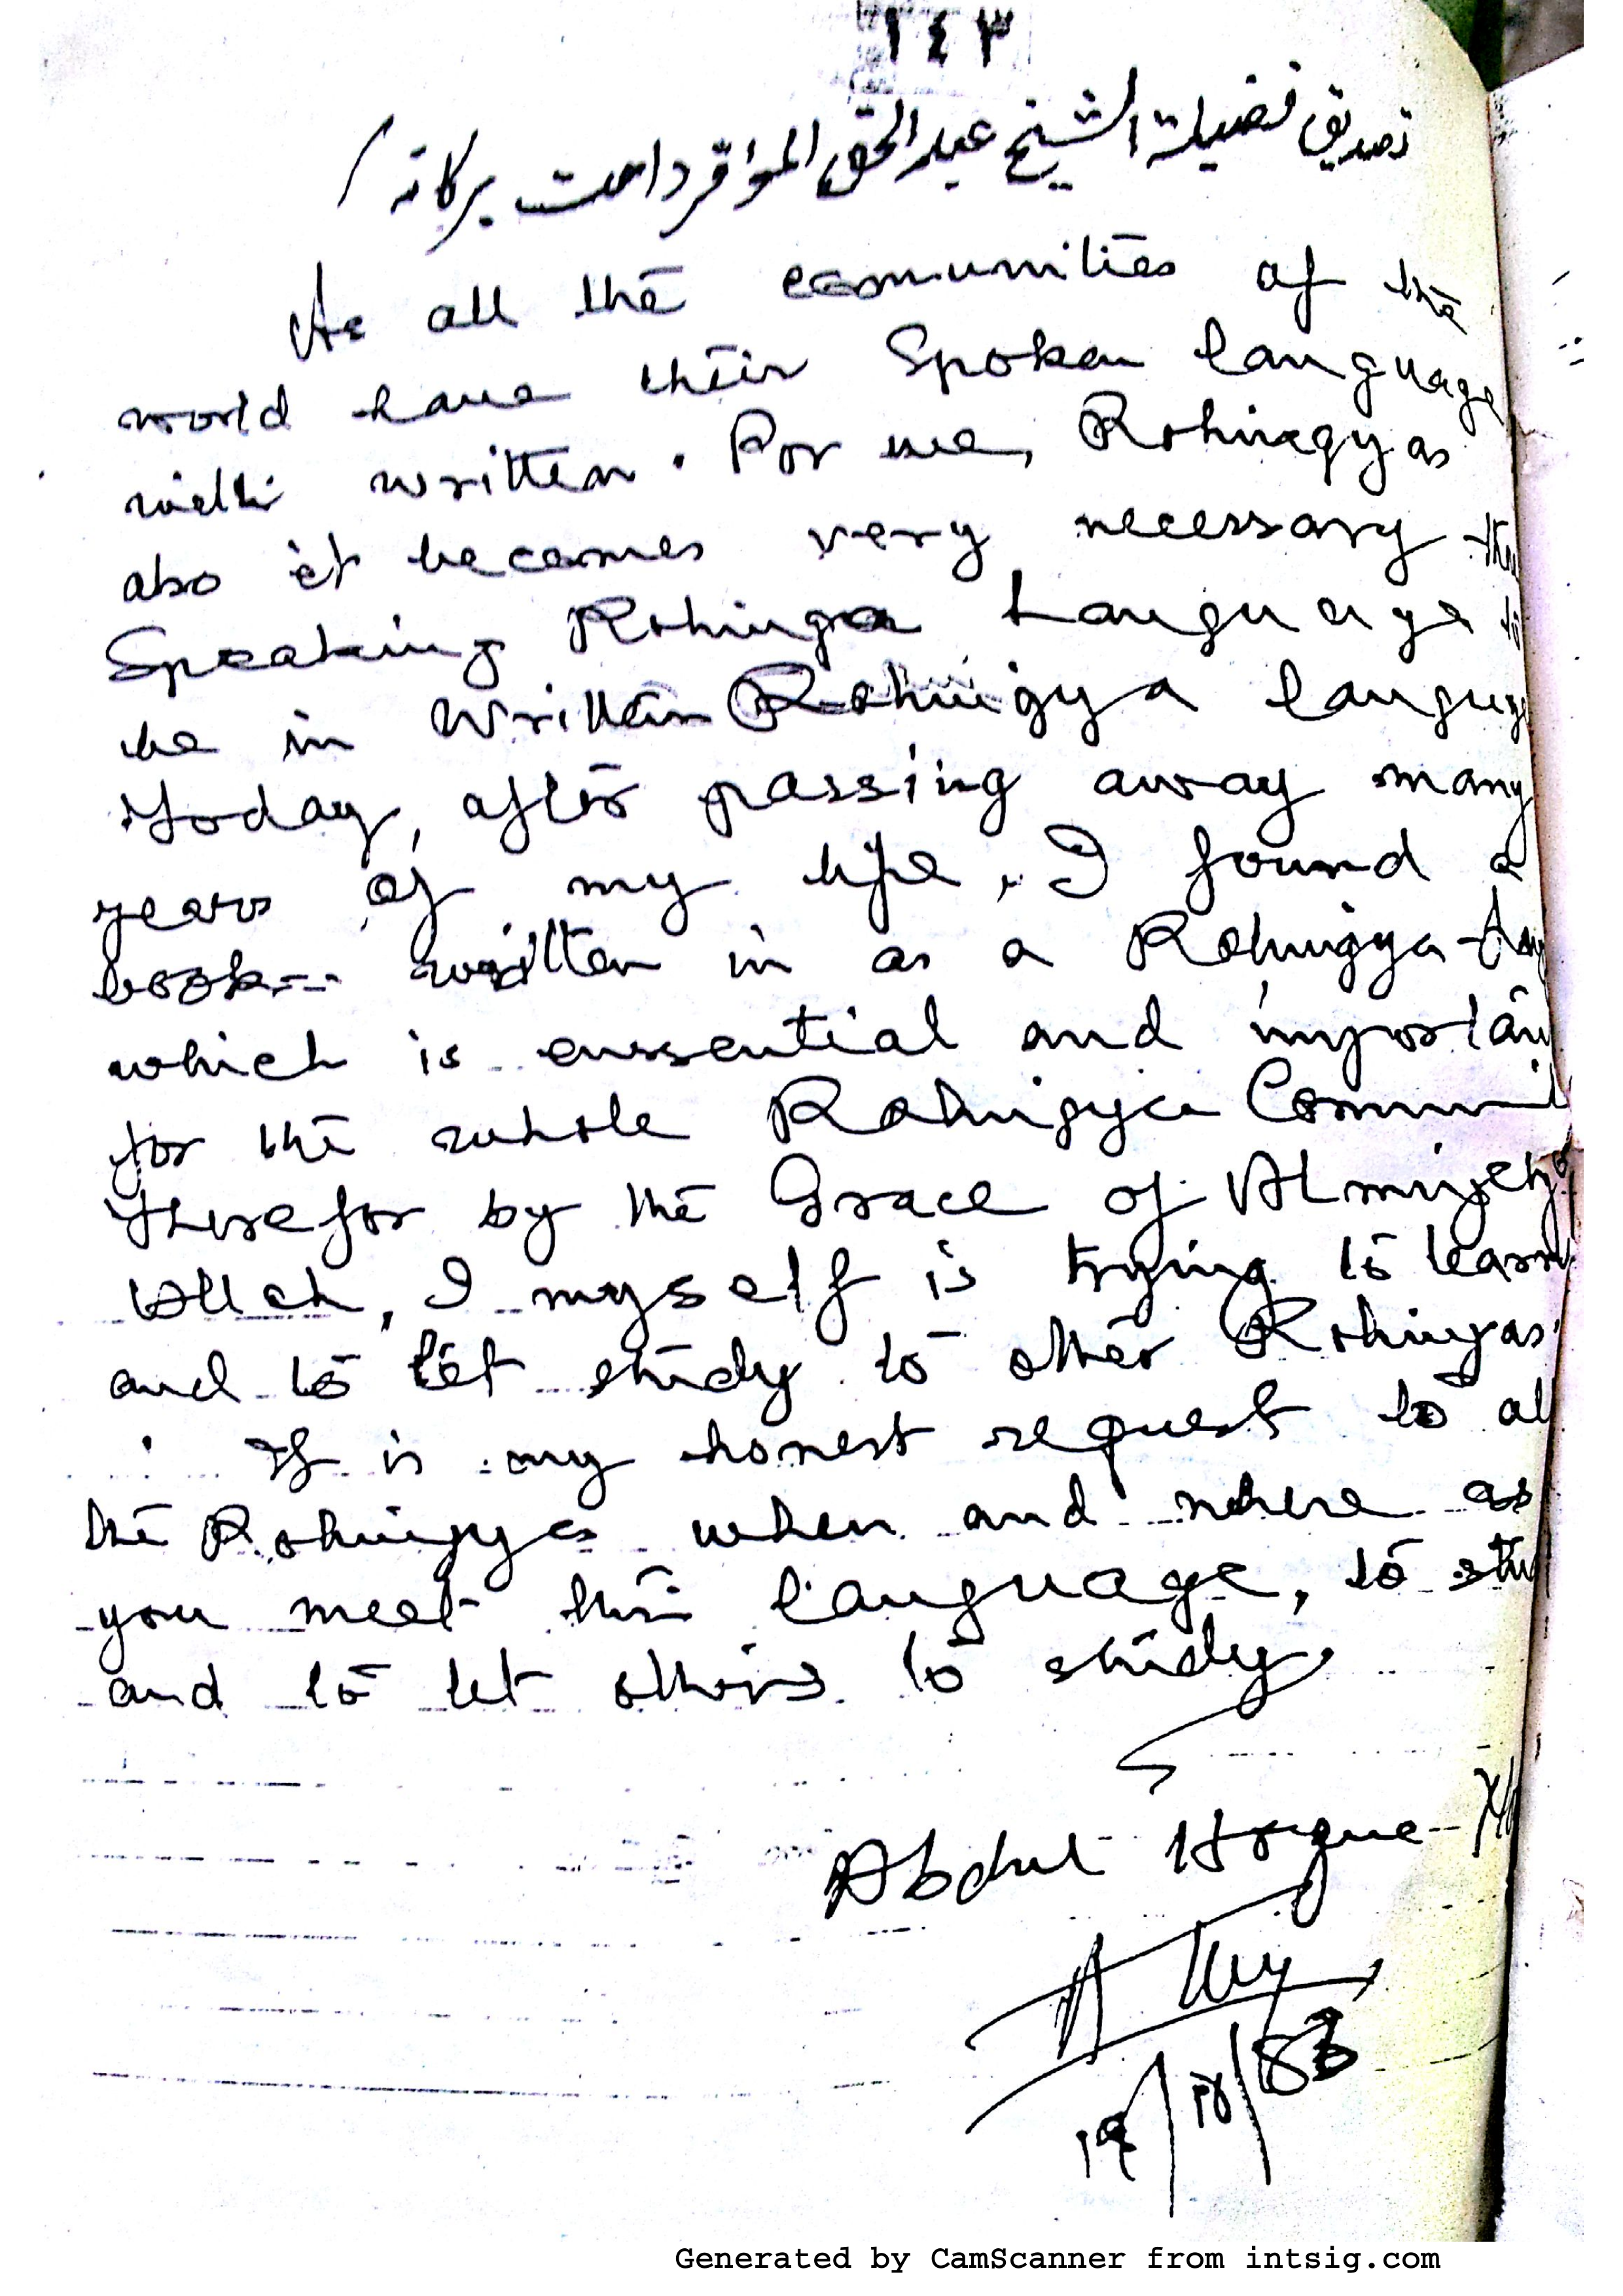 ١٤٣
تصديق فضيلة الشيخ عبدالحق المؤقر دامت بركاته /
As all the comunities of the
world have their Spoken language
with written. For we, Rohingyas
also it becomes very necessary
Speaking Rohinga Language to
be in Written Rohingya
Today, after passing away many
years of my life, I found a
book written in as a Rohingya
which is enssential and
for the whole Rohingya
Therefor by the Grace of Almighty
Allah, I myself is trying to learn
and to let study to other Rohingyas
It is my honest request to
the Rohingyas when and where as
you meet this language, to
and to let others to study.
Abdul Hoque
Generated by CamScanner from intsig.com